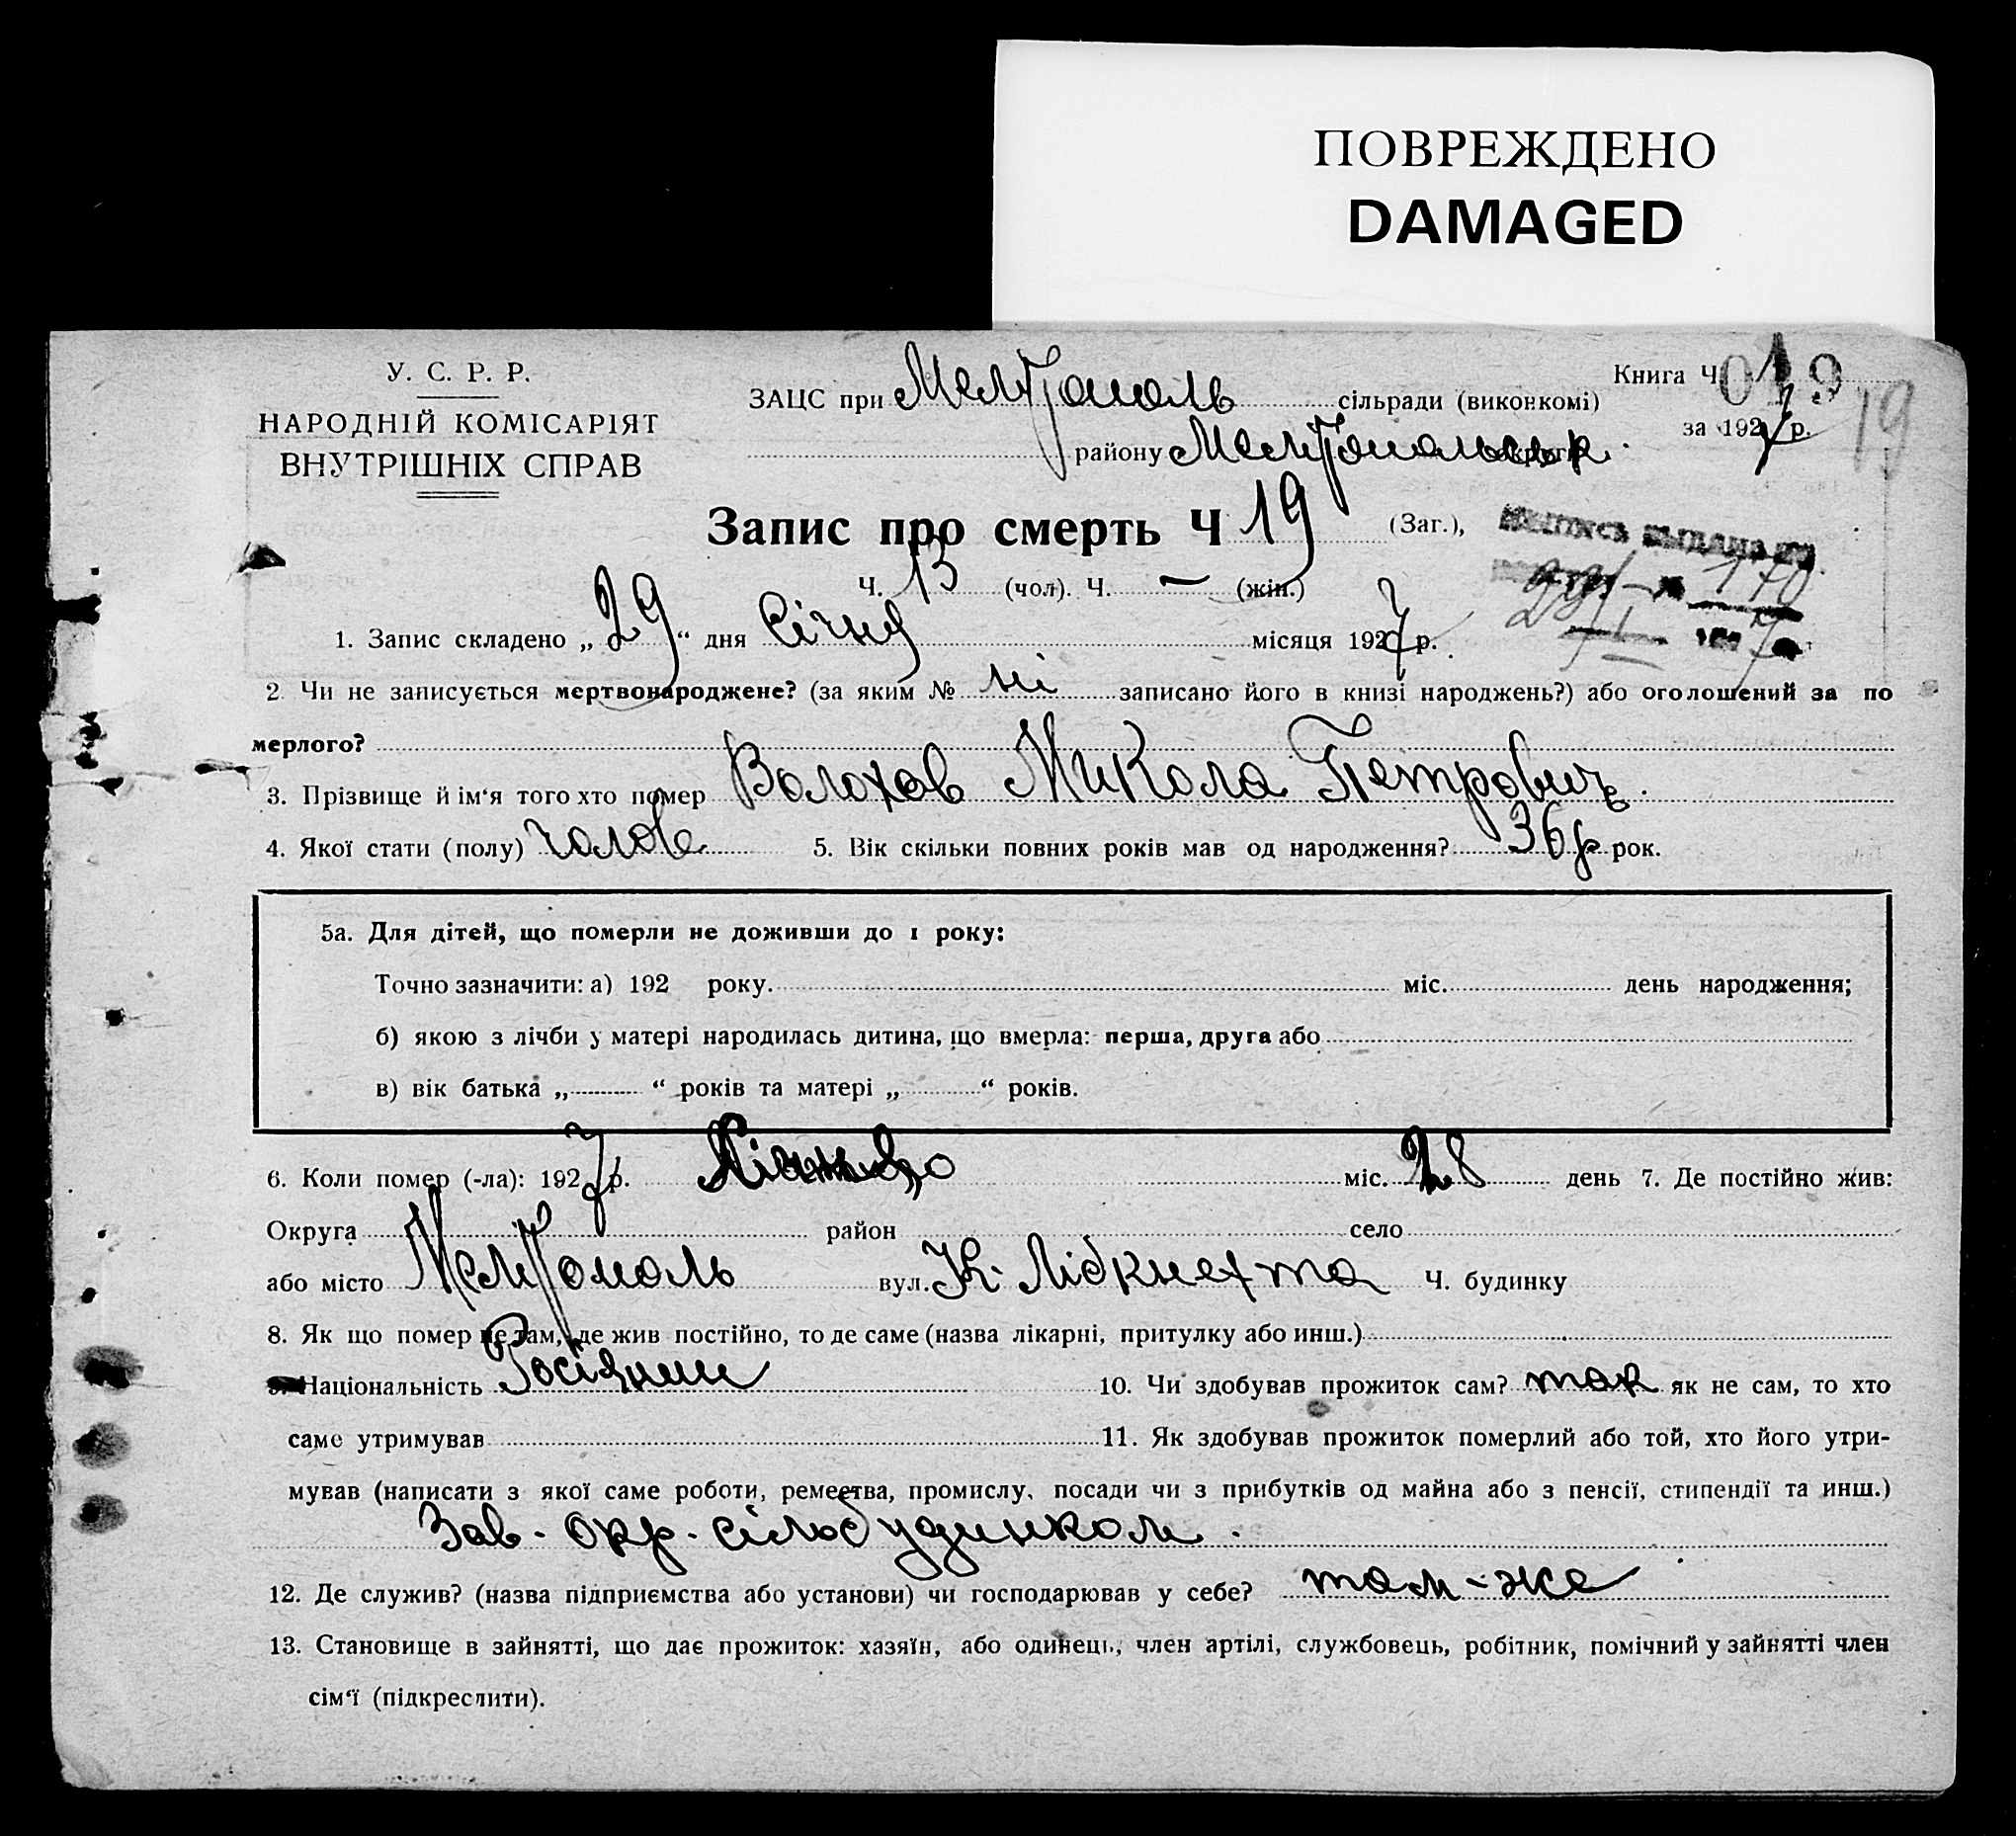 ПОВРЕЖДЕНО
DAMAGED
У. С. Р. Р.
НАРОДНІЙ КОМІСАРІЯТ
ВНУТРІШНІХ СПРАВ
Книга Ч. 019
19
ЗАЦС при Мелітополь сільради (виконкомі)
за 1927 р.
району Мелітопольськ.
Запис про смерть Ч 19 (Заг.),
Ч. 13 (чол). Ч. — (жін.)
170
1. Запис складено „29“ дня Січня місяця 1927 р.
2 Чи не записується мертвонароджене? (за яким № ні записано його в книзі народжень?) або оголошений за по
мерлого?
3. Прізвище й ім‘я того хто помер Волохов Микола Петрович.
4. Якої стати (полу) чолов 5. Вік скільки повних років мав од народження? 36 р рок.
5а. Для дітей, що померли не доживши до 1 року:
Точно зазначити: а) 192 року. міс. день народження;
б) якою з лічби у матері народилась дитина, що вмерла: перша, друга або
в) вік батька „ “ років та матері „ “ років.
6. Коли помер (-ла): 1927 р. міс. 28 день 7. Де постійно жив:
Округа район село
або місто Мелітополь вул. К. Лібкнехта Ч. будинку
8. Як що помер не там, де жив постійно, то де саме (назва лікарні, притулку або инш.)
9. Національність Росіянин 10. Чи здобував прожиток сам? так як не сам, то хто
саме утримував 11. Як здобував прожиток померлий або той, хто його утри-
мував (написати з якої саме роботи, ремества, промислу, посади чи з прибутків од майна або з пенсії, стипендії та инш.)
Зав. окр. сільбудинком.
12. Де служив? (назва підприємства або установи) чи господарював у себе? там-же
13. Становище в зайнятті, що дає прожиток: хазяїн, або одинець, член артілі, службовець, робітник, помічний у зайнятті член
сім‘ї (підкреслити).